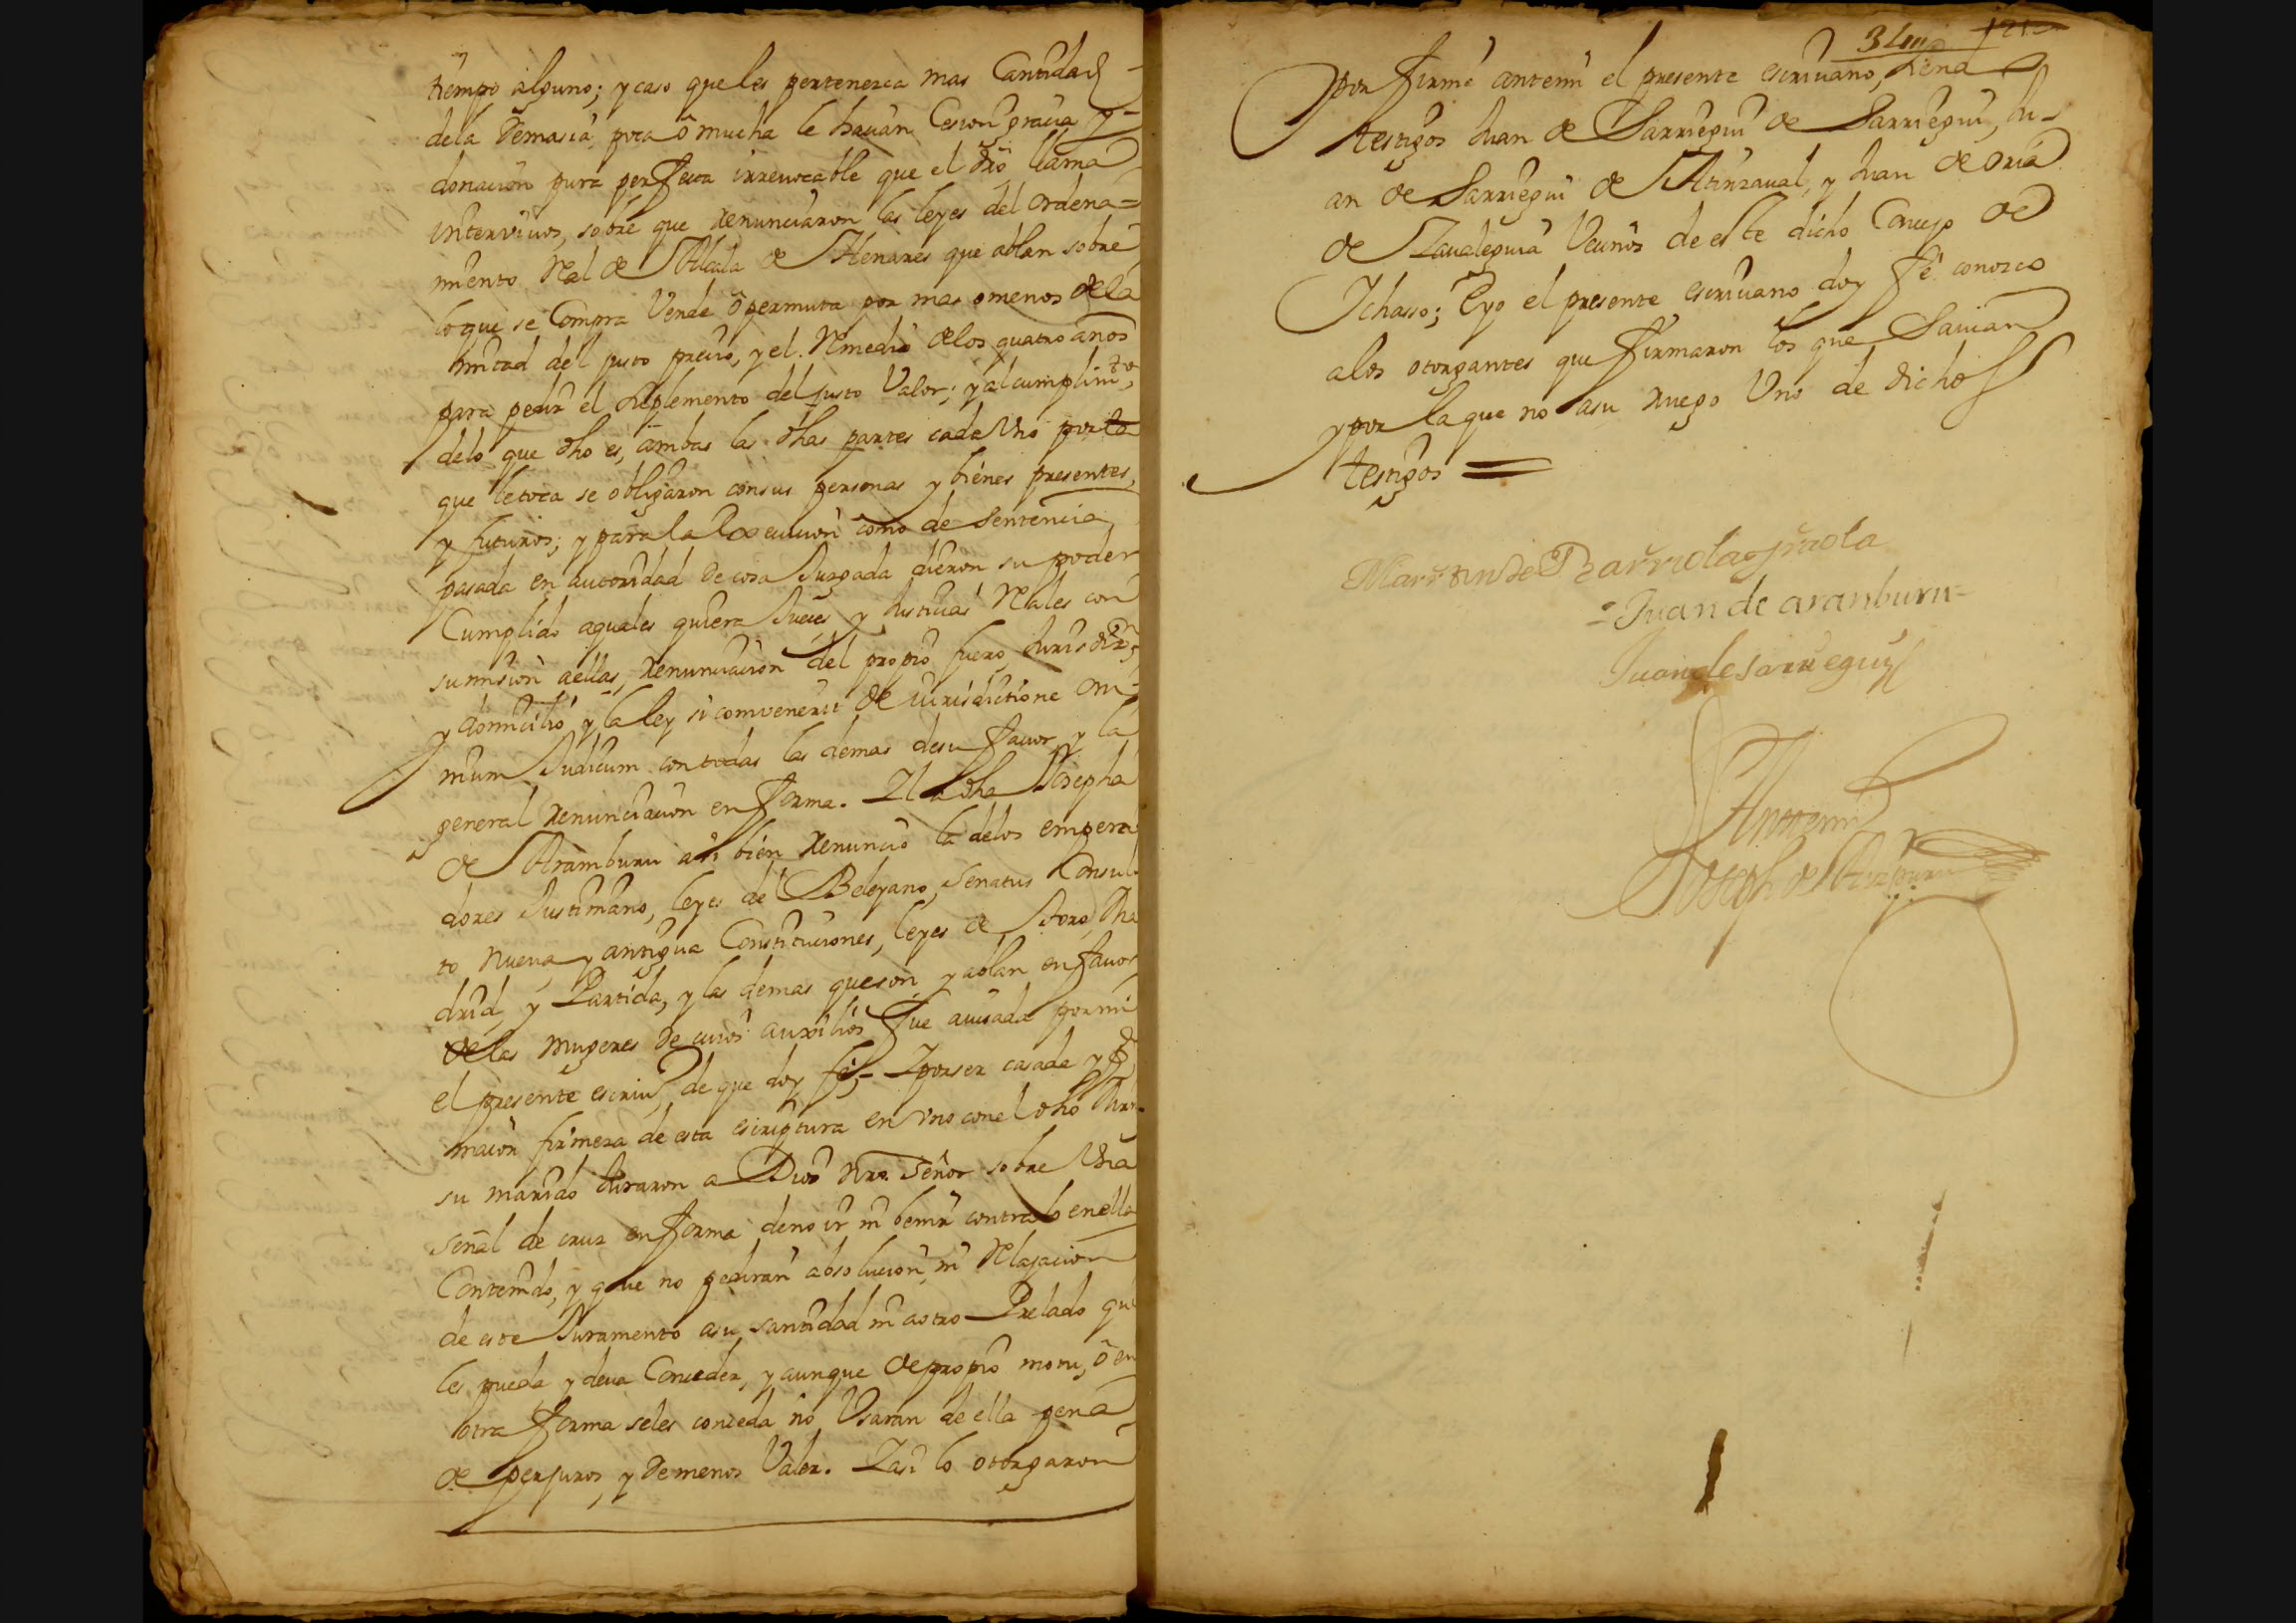 tiempo alguno; y caso que les pertenezca mas Cantidad
dela Demasia, poca ô mucha le hauian Cesion gracia y
donacion pura perfecta irreuocable que el dro llama
interviuos, sobre que renunciaron las leyes del ordena=
miento Real de Alcala de Henares que ablan sobre
loque se Compra Vende ô permuta por mas omenos dela
mitad del justo precio, y el Remedio delos quatro años
para pedir el suplemento del justo Valor; y al cumplimto
delo que dho es, ambas las dhas partes cada Vno por lo
que le toca se obligaron consus personas y bienes presentes,
y futuros; y para la execucion como de sentencia
pasada en autoridad de cosa Juzgada dieron su poder
Cumplido aquales quiera Jueces y Justicias Reales con
sumision aellas, renunciacion del propio fuero, Jurisdion,
y domicilio y la ley si convenerit de iurisdictione om-
nium Judicum con todas las demas desu fauor y la
general renunciacion en forma. Y la dha Josepha
de Aramburu asi bien renuncio la delos empera
dores Justiniano, leyes del Beleyano, senatus Consul-
to nueva y antigua Constituciones, leyes de Toro, Ma
drid, y Partida, y las demas queson y ablan en fauor
delas mugeres de cuios auxilios fue auisada por mi
el presente escriuo de que doy fe;- Y por ser casada y pa
macion firmeza de esta escriptura en vno con el dho Mrn
su marido Juraron a Dios nro. señor sobre Vna
señal de cruz en forma deno ir ni benir contra lo enella
Contenido, y que no pediran absolucion, ni Relajacion
de este Juramento asu santidad ni aotro Prelado que
les pueda y deua Conceder, y aunque de propio motu, ô en
otra forma seles conceda no Vsaran de ella pena
de perjuros, y de menos Valer. Y asi lo otorgaron
por firme antemi el presente escriuano, siendo
testigos Juan de Sarriegui de Sarriegui, Ju-
an de Sarriegui de Atinzaual, y Juan de oria
de Zaualeguia Vecinos de este dicho Concejo de
Ichasso; E yo el presente escriuano doy fé conozco
alos otorgantes que firmaron los que Sauian
y por la que no asu ruego Vno de dichos
testigos =
Juan de aranburu
Juan de sarriegui
Antemi
Joseph de Aramburu